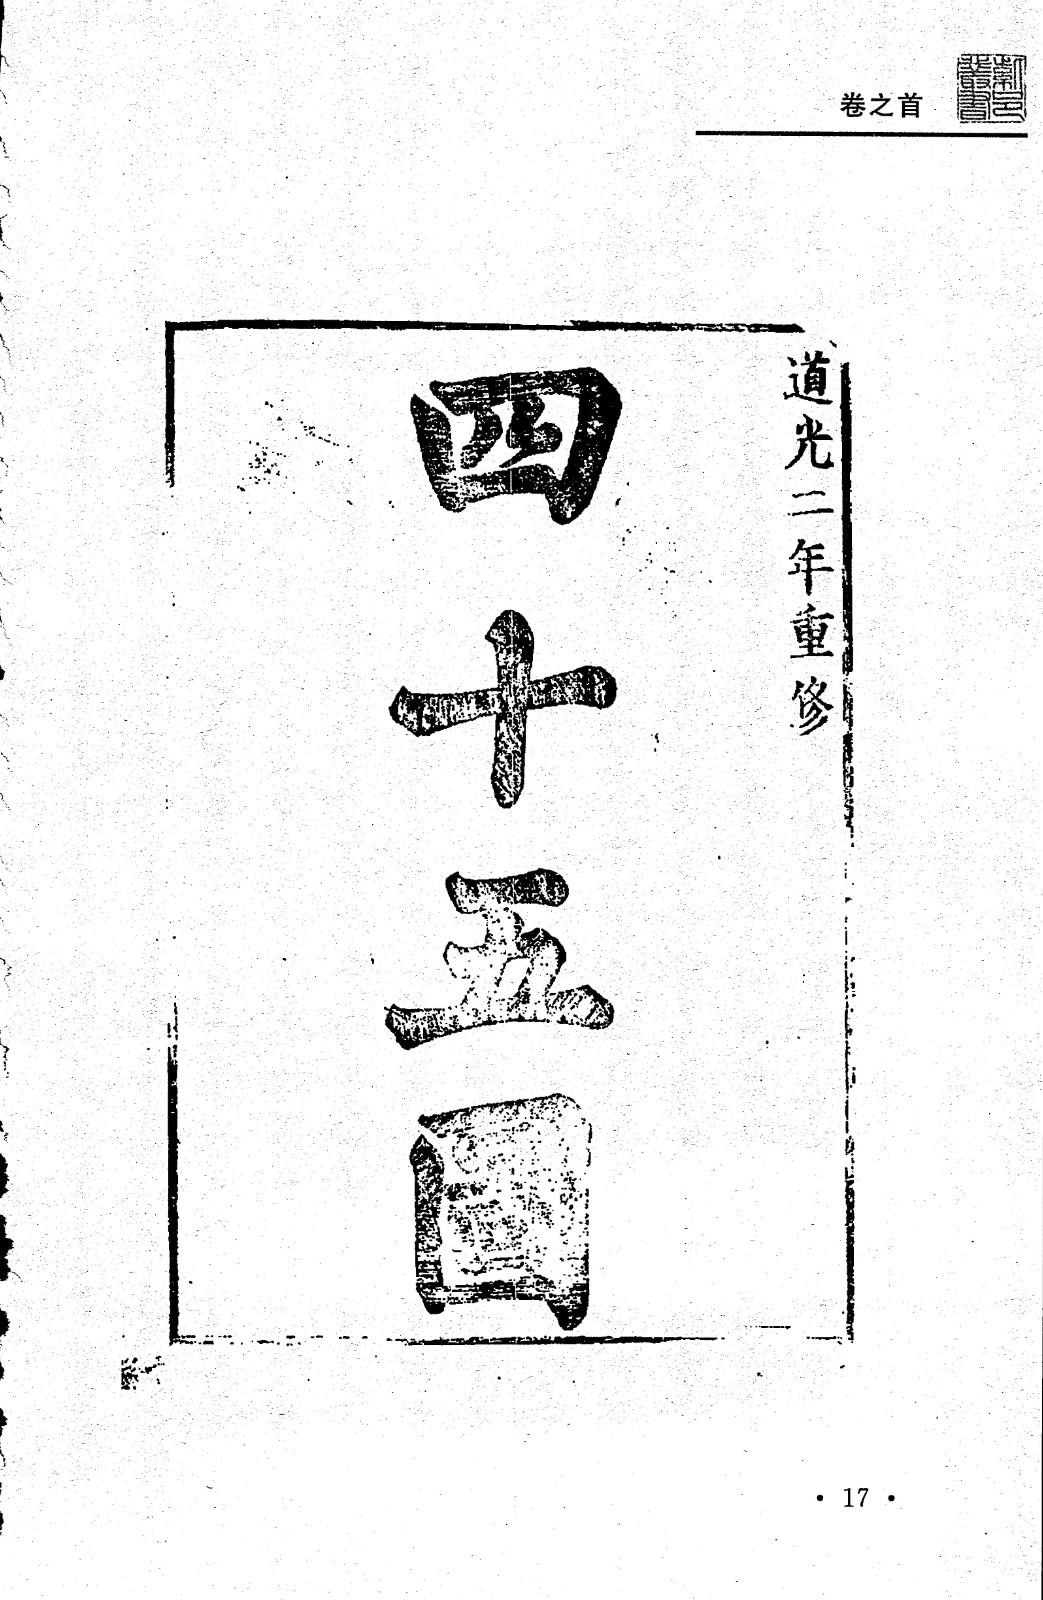 卷之首
道光二年重修
四十五圖
· 17 ·